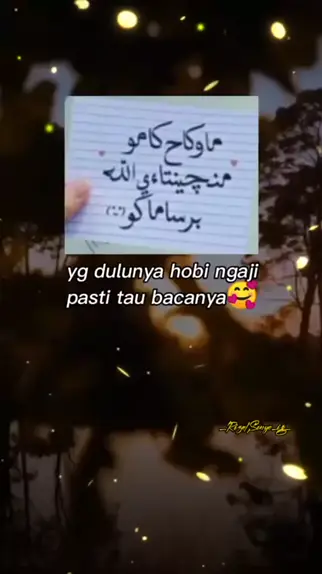 ماوكاح كامو
منچينتاءي الله
برساماكو
yg dulunya hobi ngaji
pasti tau bacanya🥰